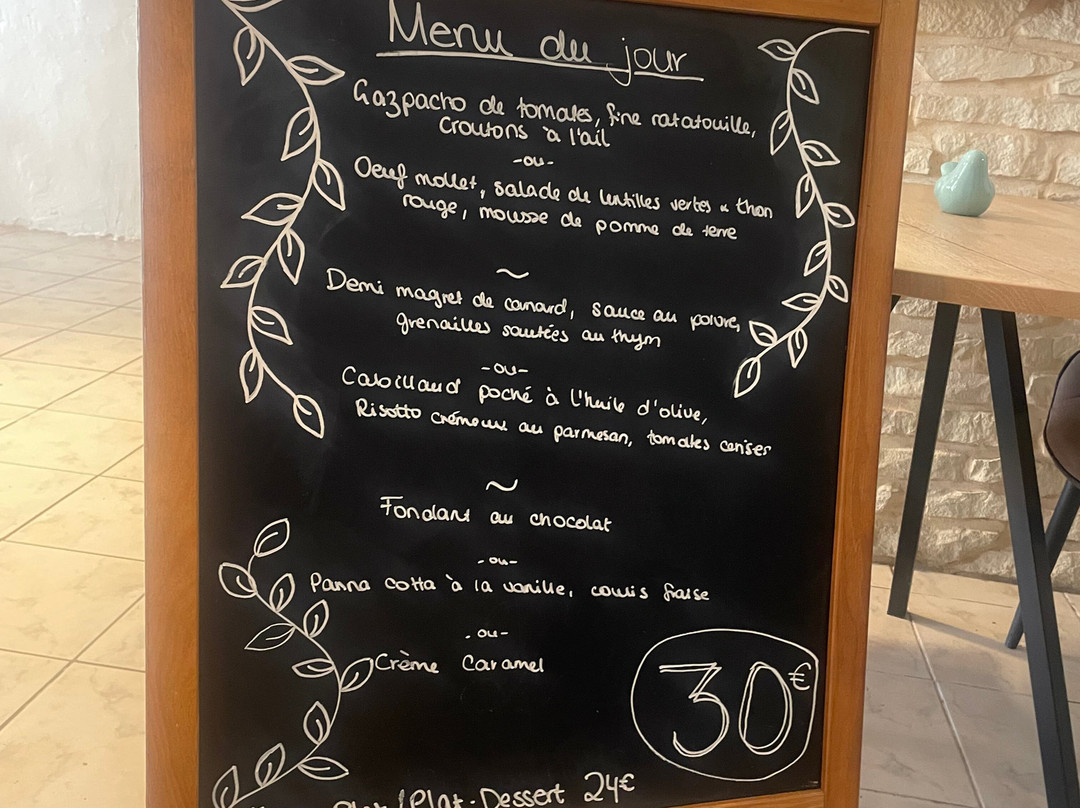 Menu du jour
Gazpacho de tomates, fine ratatouille,
croutons à l'ail
-ou-
Oeuf mollet, salade de lentilles vertes & thon
rouge, mousse de pomme de terre
~
Demi magret de canard, sauce au poivre,
grenailles sautées au thym
-ou-
Cabillaud poché à l'huile d'olive,
Risotto crémeux au parmesan, tomates cerises
~
Fondant au chocolat
-ou-
Panna cotta à la vanille, coulis fraise
-ou-
Crème Caramel
30€
Plat/Plat-Dessert 24€